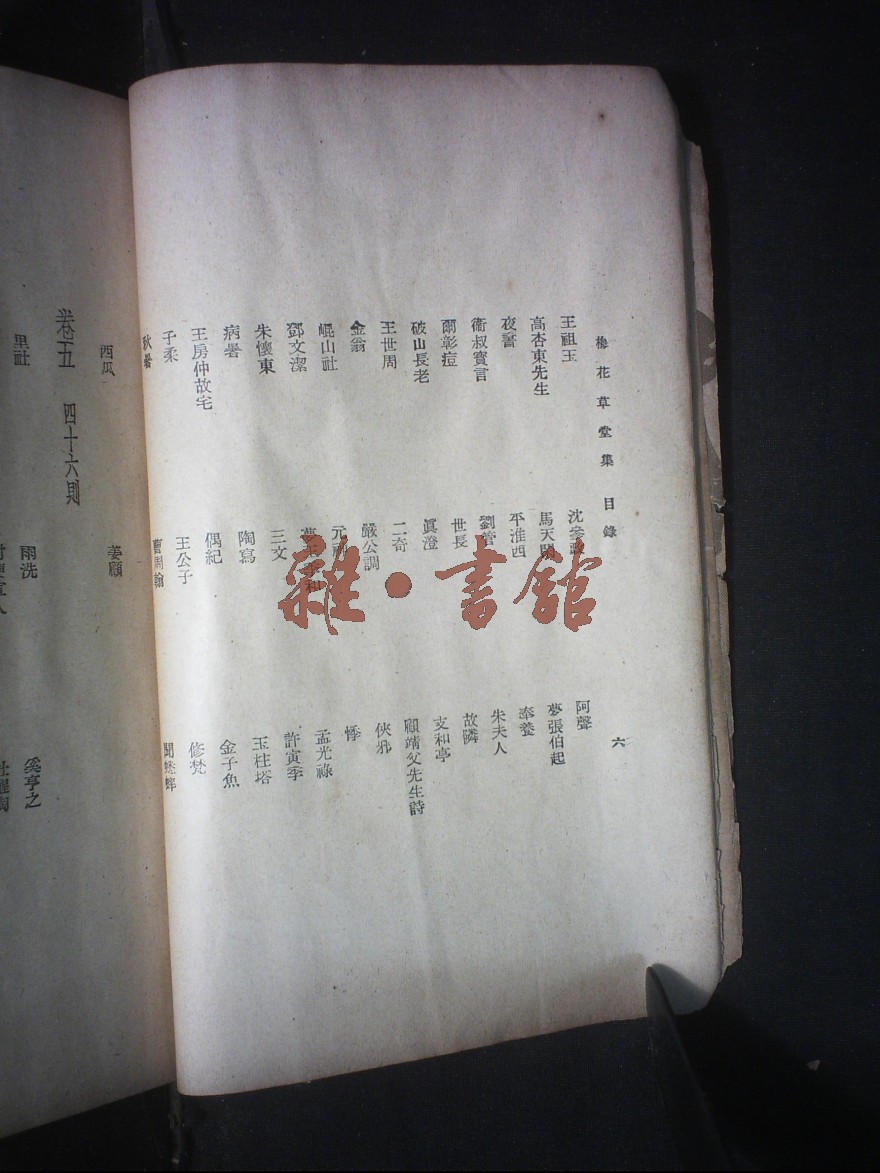 梅花草堂集 目錄 六
王祖玉 沈參政 阿聲
高杏東先生 馬天閑 夢張伯起
夜警 平淮西 奉養
衞叔寶言 劉菅 朱夫人
爾彰痘 世長 故隣
破山長老 眞澄 支和亭
王世周 二奇 顧靖父先生詩
金翁 嚴公調 俠邪
崐山社 元 悸
鄧文潔 孟光祿
朱懷東 三文 許寅季
病暑 陶寫 玉柱塔
王房仲故宅 偶紀 金子魚
子柔 王公子 修梵
秋暑 曹周翰 聞蟋蟀
西瓜 姜顧
卷五 四十六則
里社 雨洗 奚亨之
雜·書館